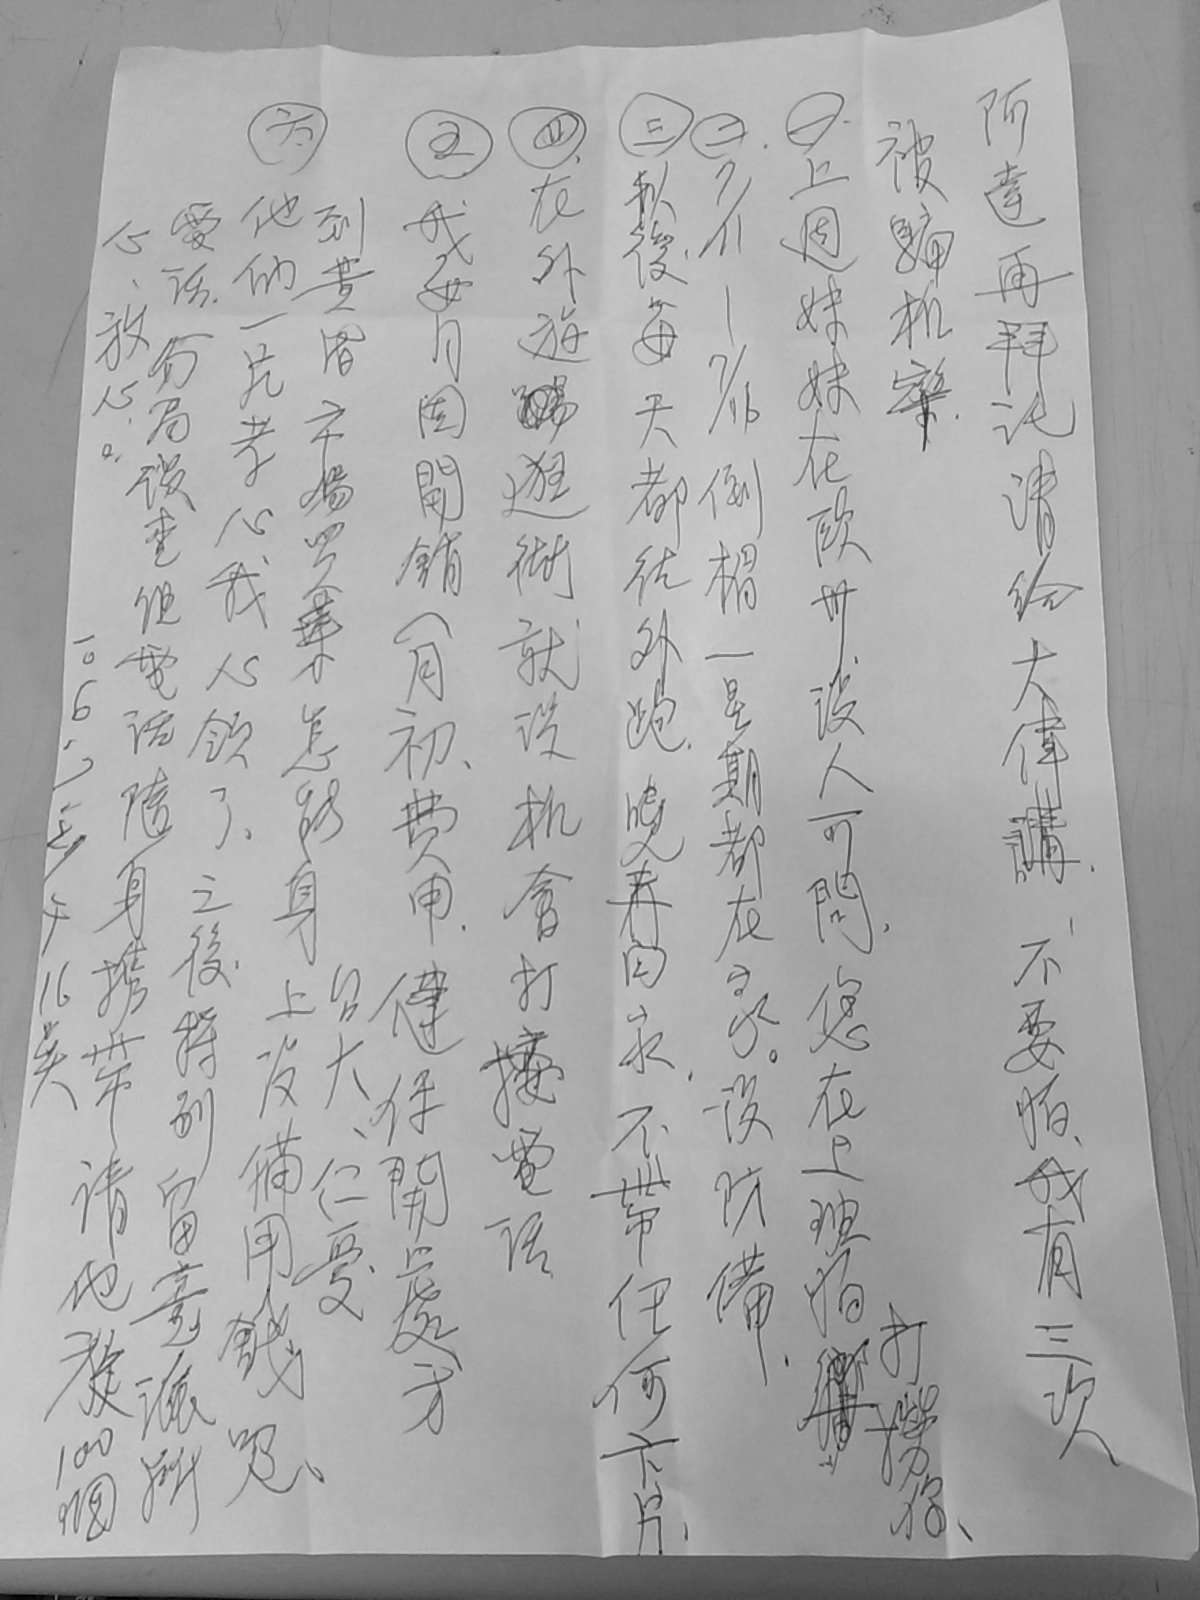 阿達再拜託請給大偉講、不要怕、我有三次
被騙机率.
㊀上週妹妹在欧卅.沒人可問.您在上班怕打擾你、
㊁7/11—7/16倒榻一星期都在家。沒防備.
㊂然後每天都往外跑.晚再回家.不帶任何卡片.
㊃在外遊蕩逛街就没机會打接電話
㊄我每月固開銷(月初、費用.健保開処方
到黃昏市場買菜怎能身上沒備用錢呢、
台大、仁愛
㊅他的一片孝心我心領了、之後特別留意
電話.分局偵查組電話隨身攜帶請他放100個
心、放心。
106.7.至.下16筆